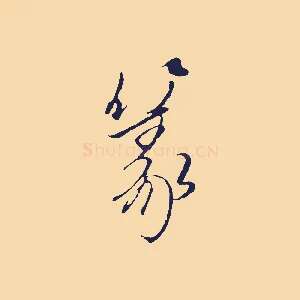 篆
ShufaZidian.CN